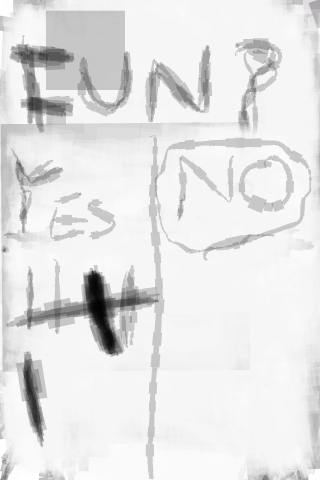 FUN?
YES NO